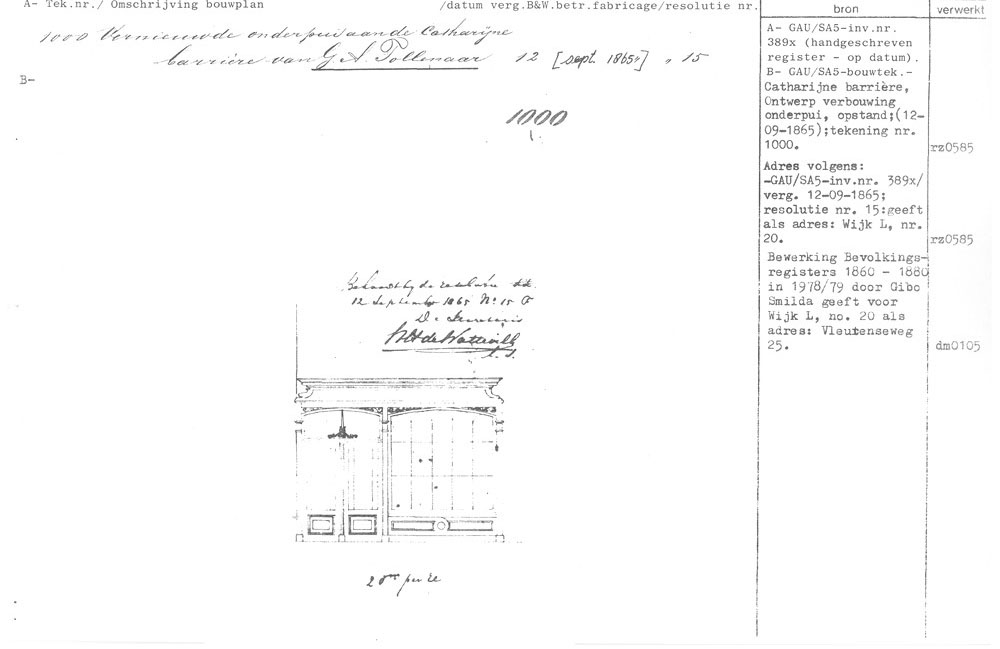 A- Tek.nr./ Omschrijving bouwplan /datum verg.B&W.betr.fabricage/resolutie nr.
1000 Vernieuwde onderpui aan de Catharijne
barrière van G.A. Tollenaar 12 [sept. 1865"] " 15
B-
1000
1.
Behoort bij de resolutie dd.
12 September 1865 No 15 F
De Secretaris
l. S.
2 dm per el
bron
A- GAU/SA5-inv.nr.
389x (handgeschreven
register - op datum).
B- GAU/SA5-bouwtek.-
Catharijne barrière,
Ontwerp verbouwing
onderpui, opstand;(12-
09-1865);tekening nr.
1000.
Adres volgens:
-GAU/SA5-inv.nr. 389x/
verg. 12-09-1865;
resolutie nr. 15:geeft
als adres: Wijk L, nr.
20.
Bewerking Bevolkings-
registers 1860 - 1880
in 1978/79 door Gibo
Smilda geeft voor
Wijk L, no. 20 als
adres: Vleutenseweg
25.
verwerkt
rz0585
rz0585
dm0105